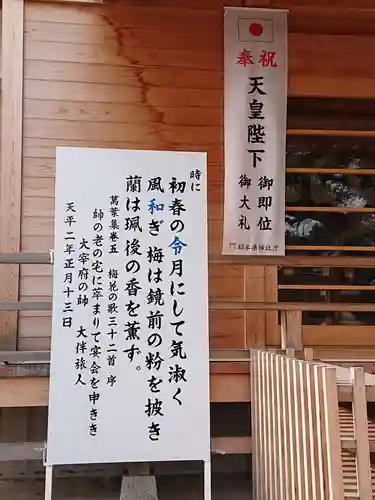 時に
初春の令月にして気淑く
風和ぎ梅は鏡前の粉を披き
蘭は珮後の香を薫す。
萬葉集巻五 梅花の歌三十二首 序
師の老の宅に萃まりて宴会を申きき
大宰府の師 大伴旅人
天平二年正月十三日
奉祝
天皇陛下
御即位
御大礼
神社庁